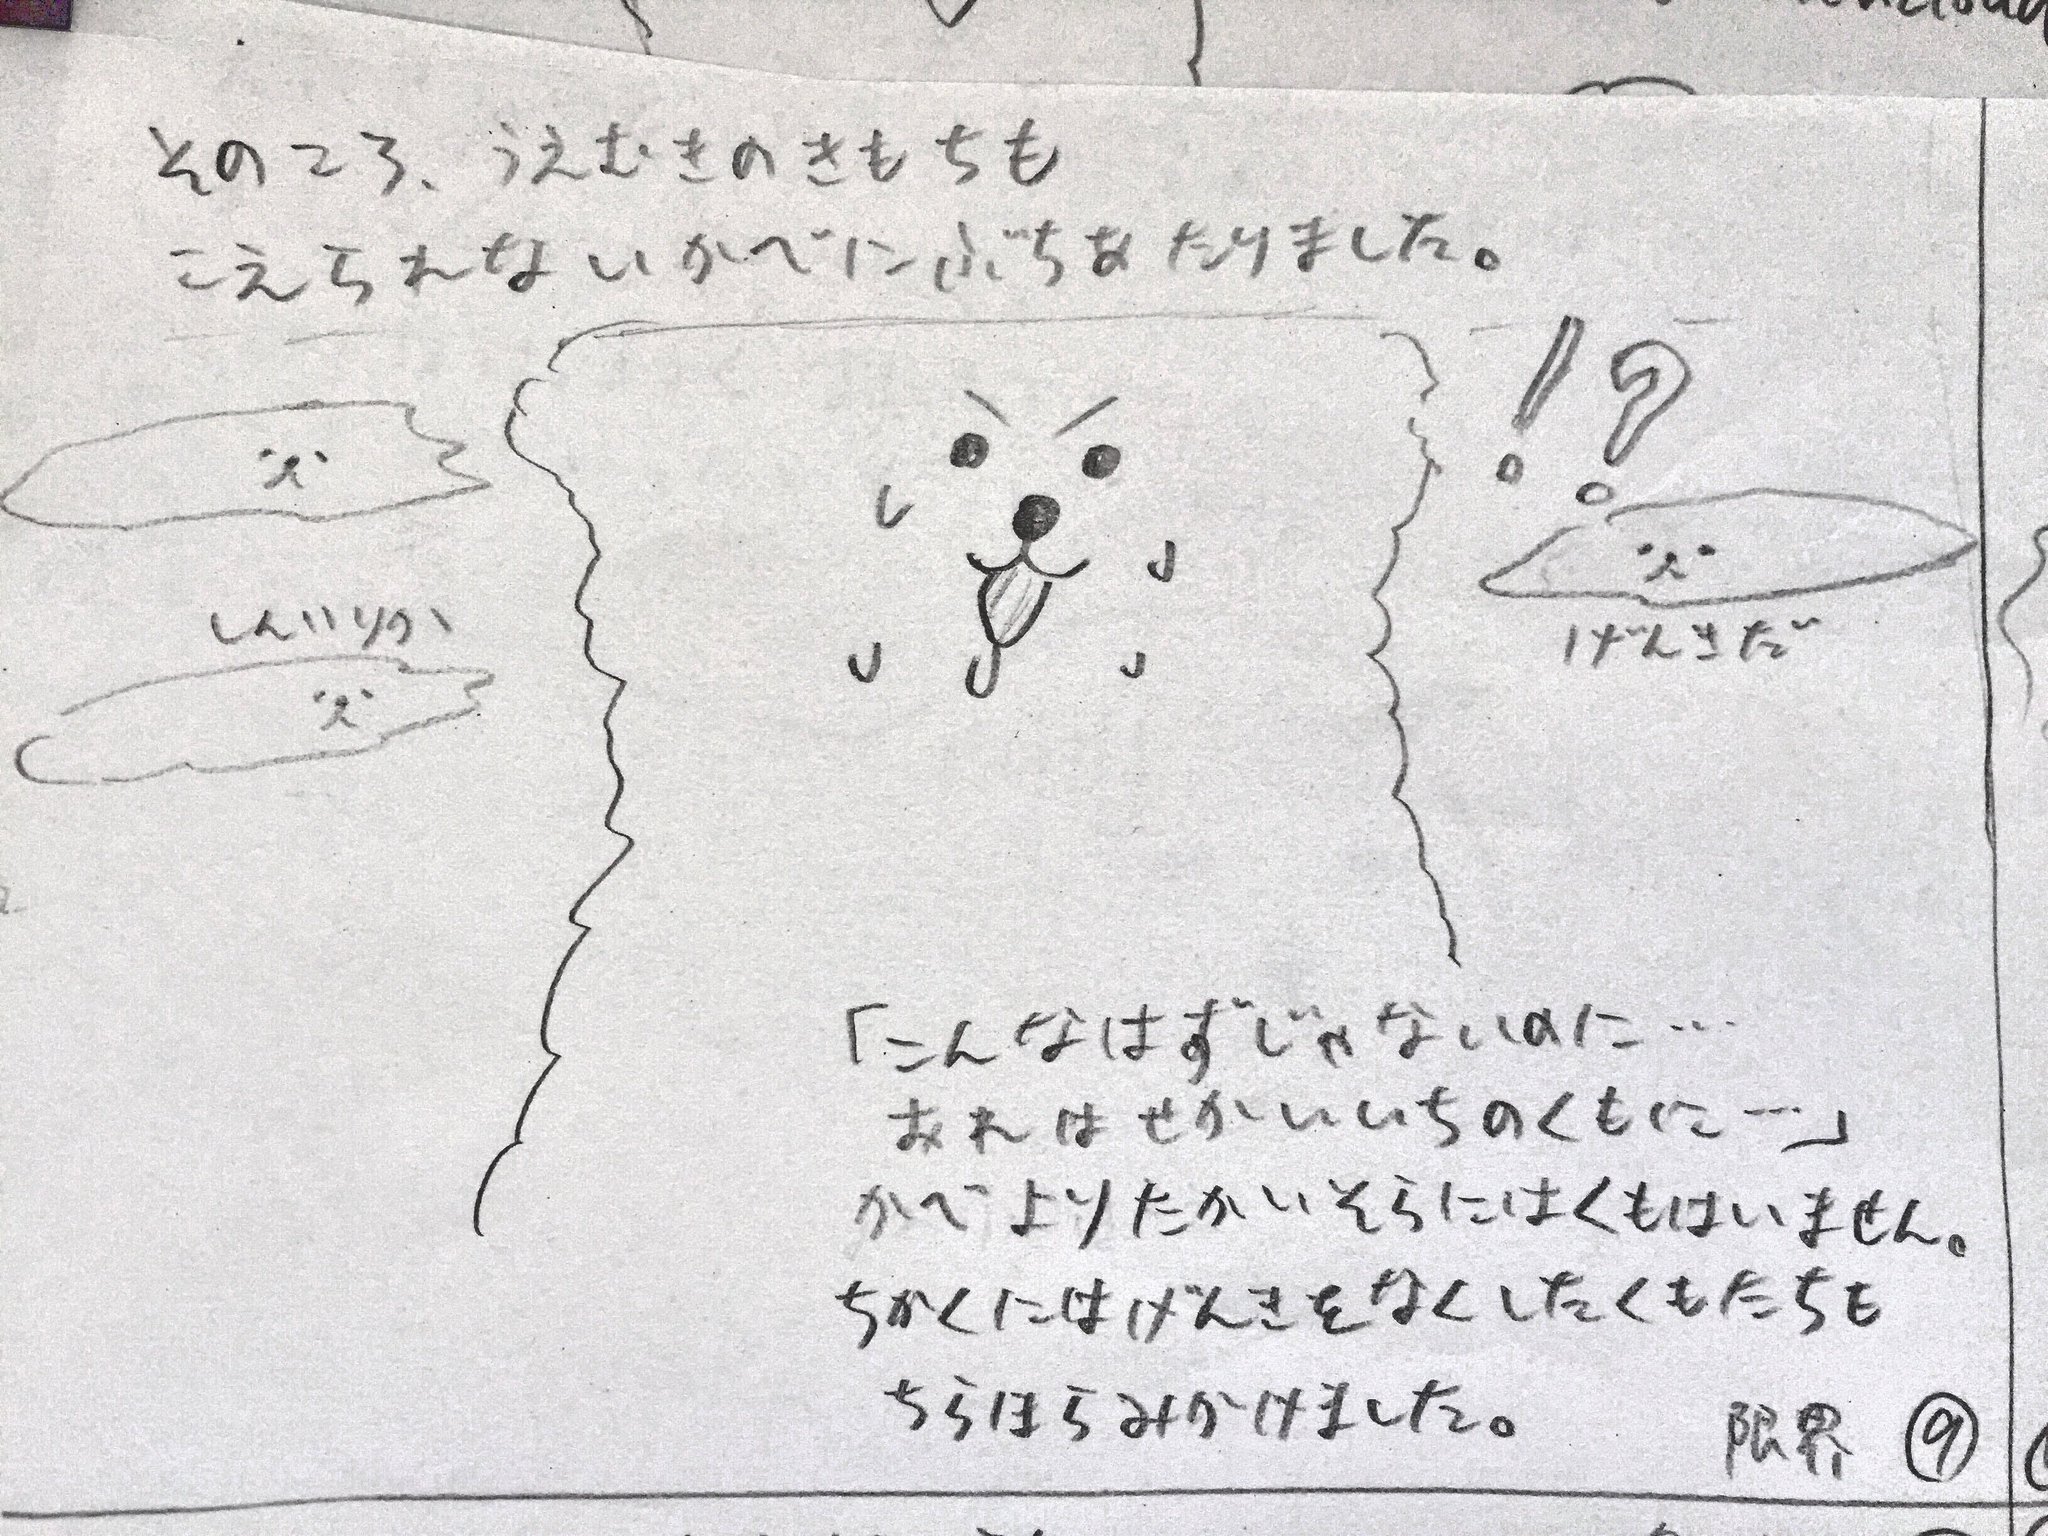 そのころ、うえむきのきもちも
こえられないかべにぶちあたりました。
!?
しんいりか
げんきだ
「こんなはずじゃないのに…
おれはせかいいちのくもに…」
かべよりたかいそらにはくもはいません。
ちかくにはげんきをなくしたくもたちも
ちらほらみかけました。
限界 ⑨